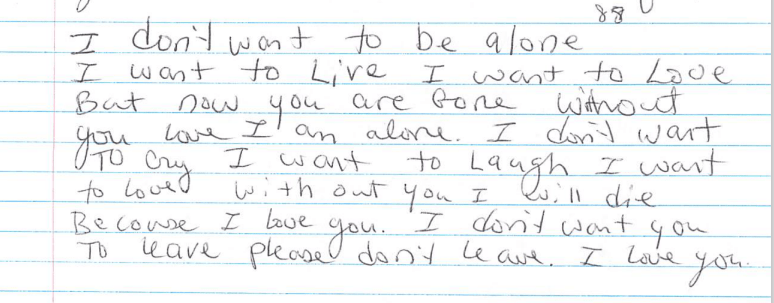 88
I don't want to be alone
I want to Live I want to Love
But now you are Gone Without
you Love I an alone. I don't want
TO Cry I want to Laugh I want
to Loved with out you I will die
Because I love you. I don't want you
To leave please don't leave. I love you.